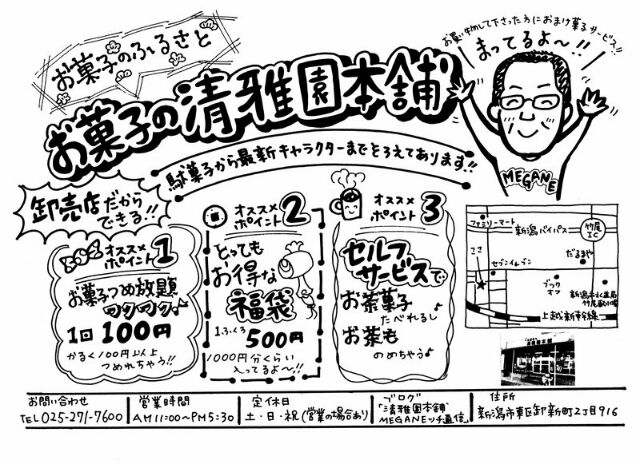 お菓子のふるさと
お買い物して下さった方におまけ菓子サービス!!
まってるよ〜!!
お菓子の清雅園本舗
MEGANE
駄菓子から最新キャラクターまでそろえてあります!!
卸売店だから
できる!!
オススメ
ポイント1
お菓子つめ放題
ワクワク♪
1回100円
かるく100円以上
つめれちゃう!!
オススメ
ポイント2
とっても
お得な
福袋
500円
1000円分くらい
入ってるよ〜!!
オススメ
ポイント3
セルフ
サービスで
お茶菓子
たべれるし♪
お茶も
のめちゃう♪
ファミリーマート
新潟バイパス
竹尾
IC
ココ
セブンイレブン
だるまや
ブック
オフ
新潟市水道局
上越新幹線
お問い合わせ
TEL 025-271-7600
営業時間
AM11:00〜PM5:30
定休日
土・日・祝(営業の場合あり)
ブログ
「清雅園本舗
MEGANEッチ通信」
住所
新潟市東区卸新町2丁目916